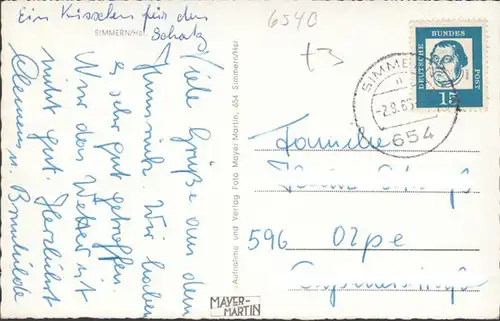 Ein Küsschen für den
Schatz
SIMMERN/Hsr.
6540
t3
Viele Grüße aus dem
Hunsrück. Wir haben
es sehr gut getroffen.
Nur das Wetter ist
nicht gut. Herzlichst
Clemens u. Brunhilde
Aufnahme und Verlag Foto Mayer-Martin, 654 Simmern/Hsr.
MAYER-
MARTIN
DEUTSCHE BUNDES POST
15
SIMMERN
-2.9.65
654
Familie
596 Olpe